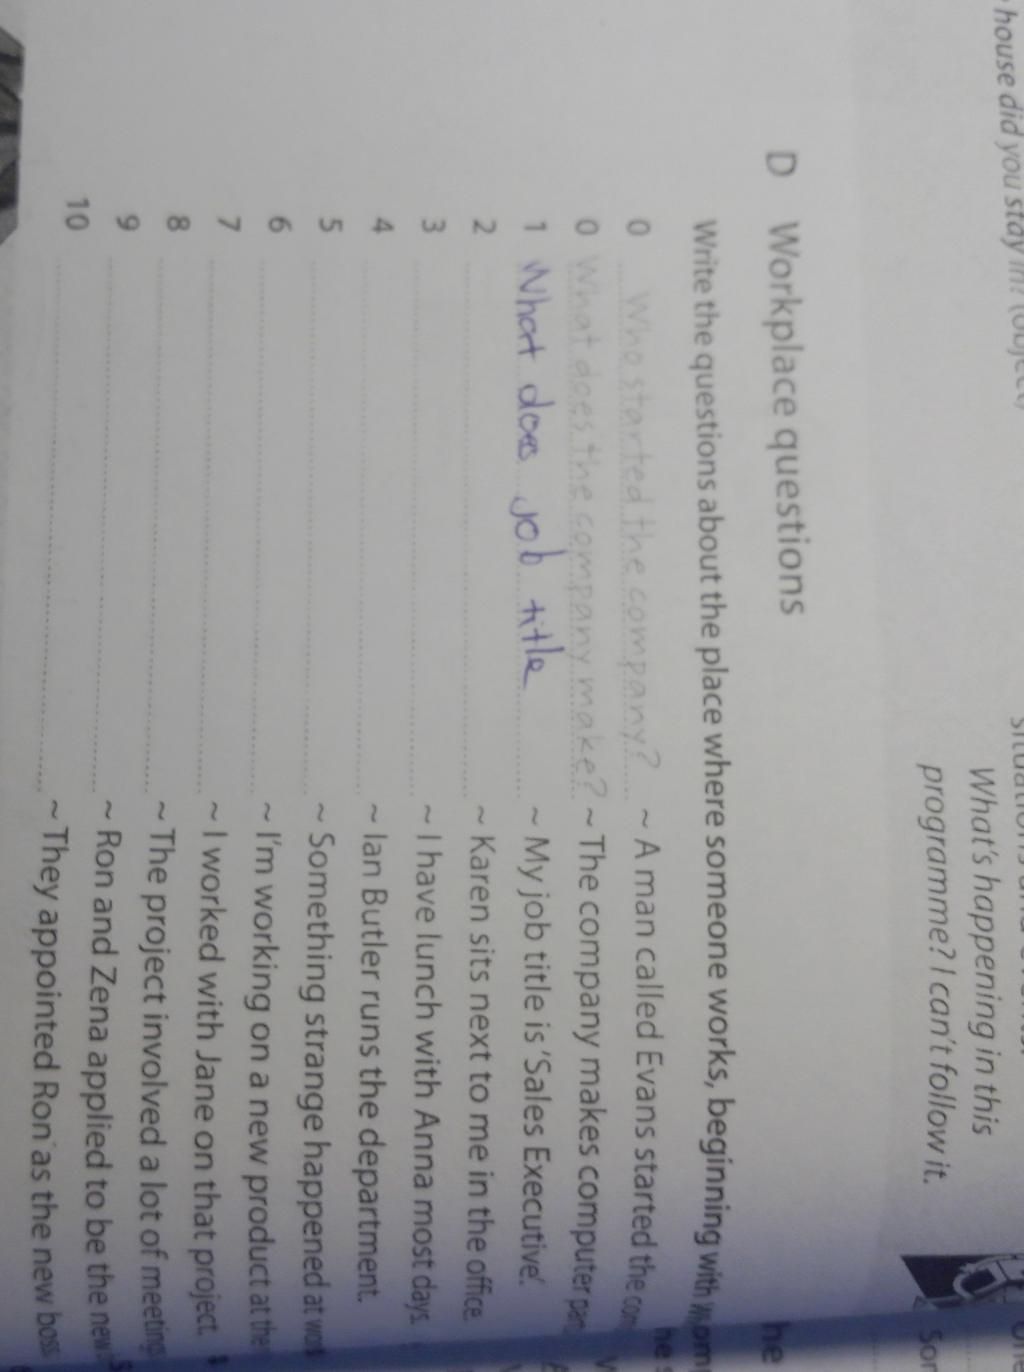 house did you stay in? (object)
What's happening in this
programme? I can't follow it.
D Workplace questions
Write the questions about the place where someone works, beginning with
0 Who started the company? ~ A man called Evans started the
0 What does the company make? ~ The company makes computer
1 What does job title ~ My job title is 'Sales Executive'.
2 ~ Karen sits next to me in the office.
3 ~ I have lunch with Anna most days.
4 ~ Ian Butler runs the department.
5 ~ Something strange happened at
6 ~ I'm working on a new product at the
7 ~ I worked with Jane on that project.
8 ~ The project involved a lot of
9 ~ Ron and Zena applied to be the new
10 ~ They appointed Ron as the new boss